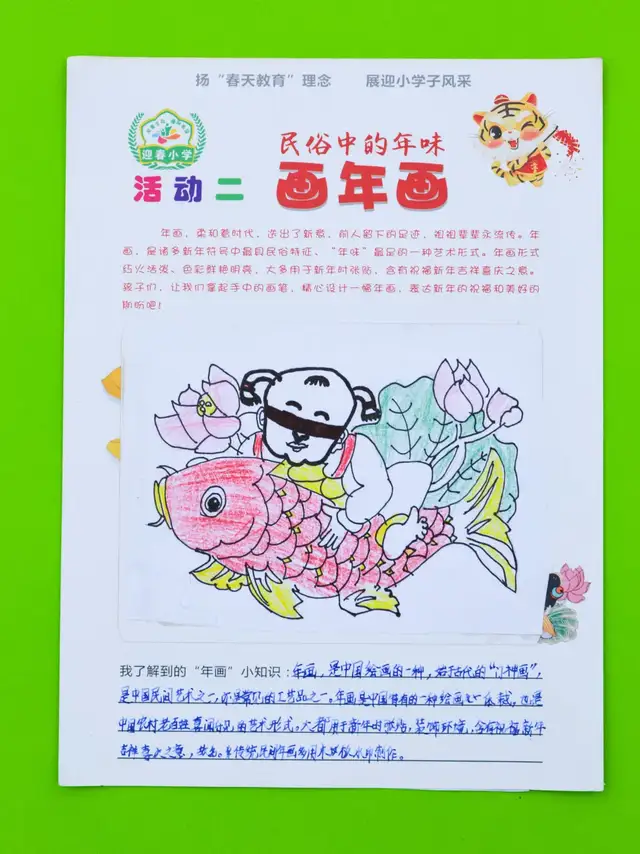 扬“春天教育”理念 展迎小学子风采
迎春小学
民俗中的年味
活动二 画年画
年画，柔和着时代，迸出了新意，前人留下的足迹，祖祖辈辈永流传。年
画，是诸多新年符号中最具民俗特征、“年味”最足的一种艺术形式。年画形式
红火活泼、色彩鲜艳明亮，大多用于新年时张贴，含有祝福新年吉祥喜庆之意。
孩子们，让我们拿起手中的画笔，精心设计一幅年画，表达新年的祝福和美好的
期盼吧！
我了解到的“年画”小知识：年画，是中国绘画的一种，始于古代的“门神画”，
是中国民间艺术之一，亦是常见的工艺品之一。年画是中国特有的一种绘画体裁，也是
中国农村老百姓喜闻乐见的艺术形式。大都用于新年时张贴，装饰环境，含有祝福新年
吉祥喜庆之意，故名。传统民间年画多用木版水印制作。